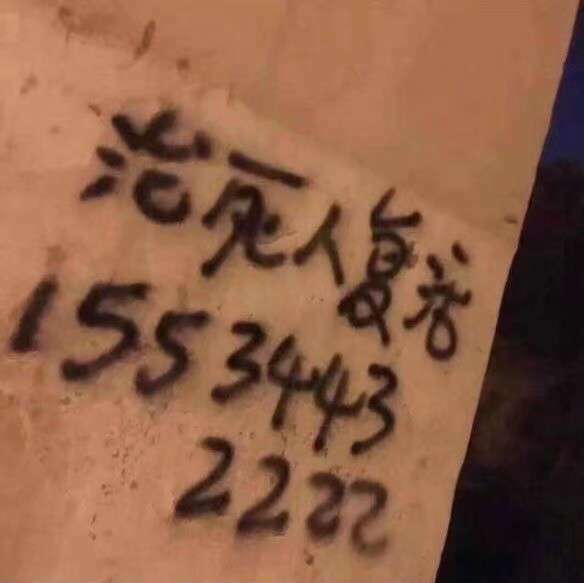 治死人复活
1553443
2222